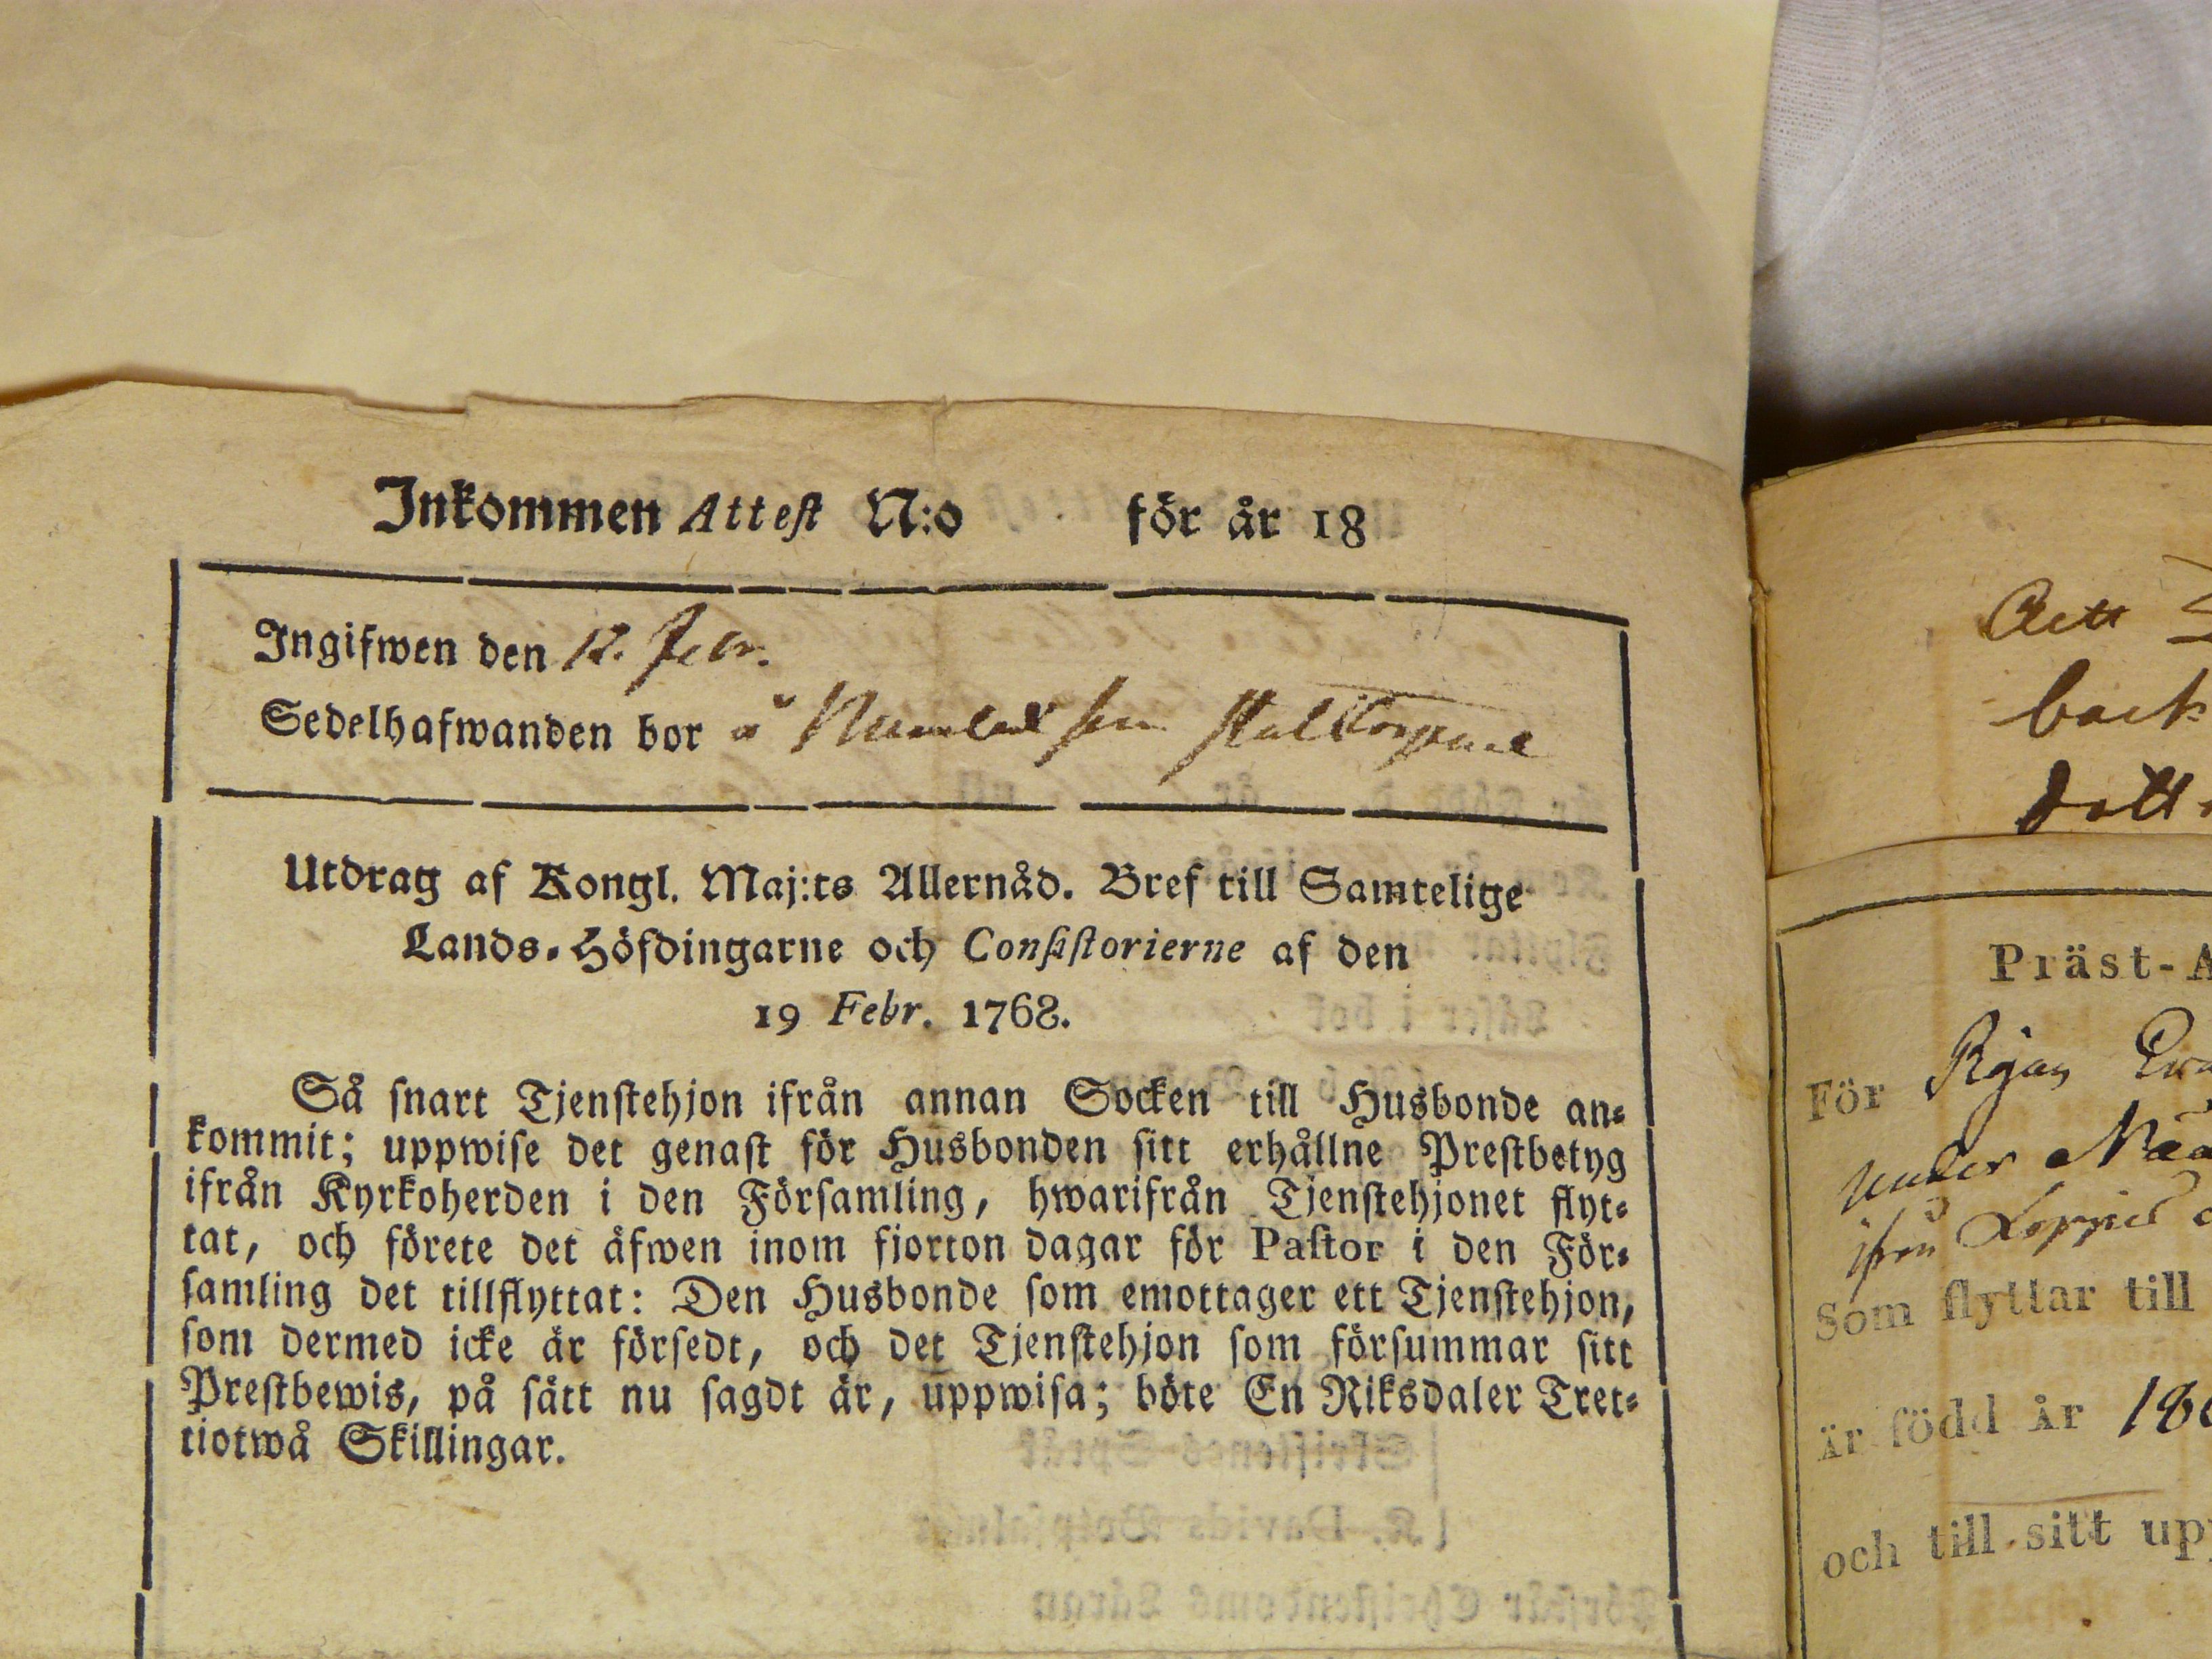 Inkommen Attest N:o för år 18
Ingifwen den 12. Febr.
Sedelhafwanden bor å
Utdrag af Kongl. Maj:ts Allernåd. Bref till Samtelige
Lands-Höfdingarne och Consistorierne af den
19 Febr. 1768.
Så snart Tjenstehjon ifrån annan Socken till Husbonde an-
kommit; uppwise det genast för Husbonden sitt erhållne Prestbetyg
ifrån Kyrkoherden i den Församling, hwarifrån Tjenstehjonet flyt-
tat, och förete det äfwen inom fjorton dagar för Pastor i den För-
samling det tillflyttat: Den Husbonde som emottager ett Tjenstehjon,
som dermed icke är försedt, och det Tjenstehjon som försummar sitt
Prestbewis, på sätt nu sagdt är, uppwisa; böte En Riksdaler Tret-
tiotwå Skillingar.
back
dott
Präst-A
För
under
ifrån
Som flyttar till
Är född år 18
och till sitt up